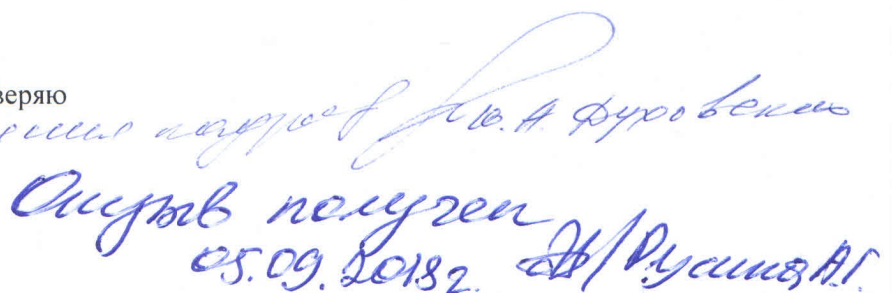 веряю
кадров Ю.А. Духовенко
Отзыв получен
05.09.2018г. Русина А.Г.